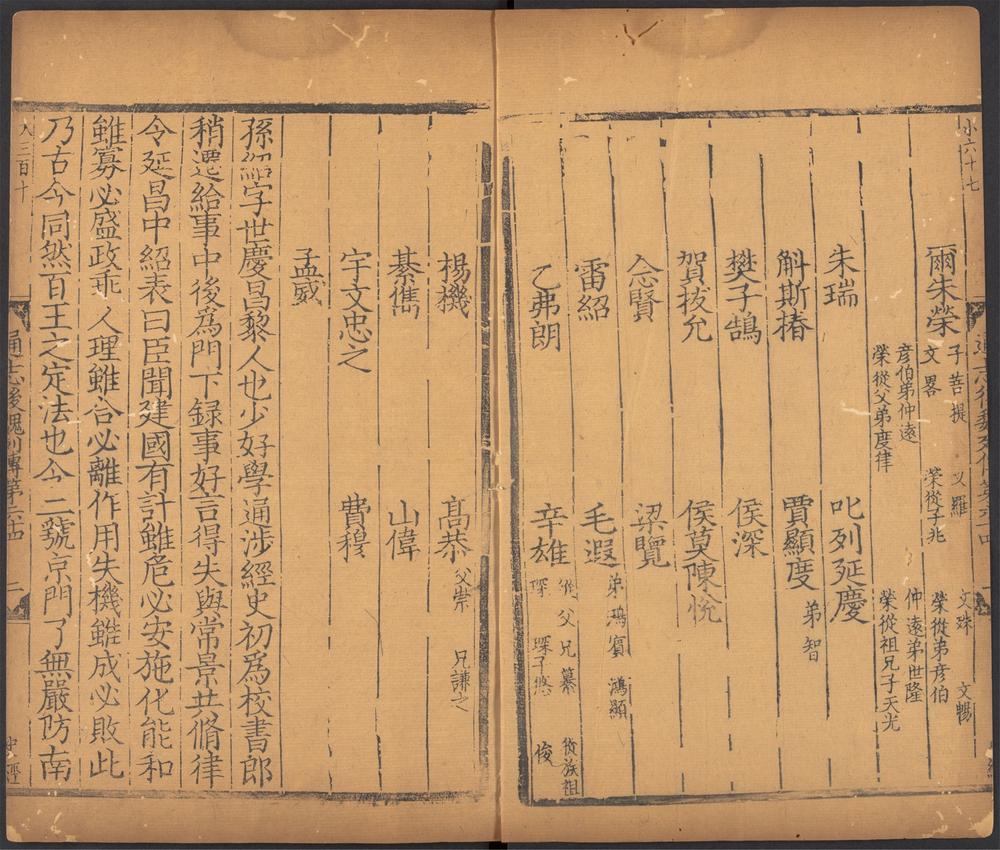 爾朱榮 子菩提 乂羅 文殊 文暢
文畧 榮從子兆 榮從弟彦伯
彦伯弟仲遠 仲遠弟世隆
榮從父弟度律 榮從祖兄子天光
朱瑞 叱列延慶
斛斯椿 賈顯度 弟智
樊子鵠 侯深
賀拔允 侯莫陳悅
念賢 梁覽
雷紹 毛遐 弟鴻賓 鴻顯
乙弗朗 辛雄 從父兄纂 從族祖
琛 琛子悠 俊
楊機 高恭 父崇 兄謙之
綦儁 山偉
宇文忠之 費穆
孟威
孫紹字世慶昌黎人也少好學通涉經史初爲校書郎
稍遷給事中後爲門下録事好言得失與常景共脩律
令延昌中紹表曰臣聞建國有計雖危必安施化能和
雖寡必盛政乖人理雖合必離作用失機雖成必敗此
乃古今同然百王之定法也今二虢京門了無嚴防南
小六十七
通志後魏列傳第六十四
人三百十
通志後魏列傳第六十四 二